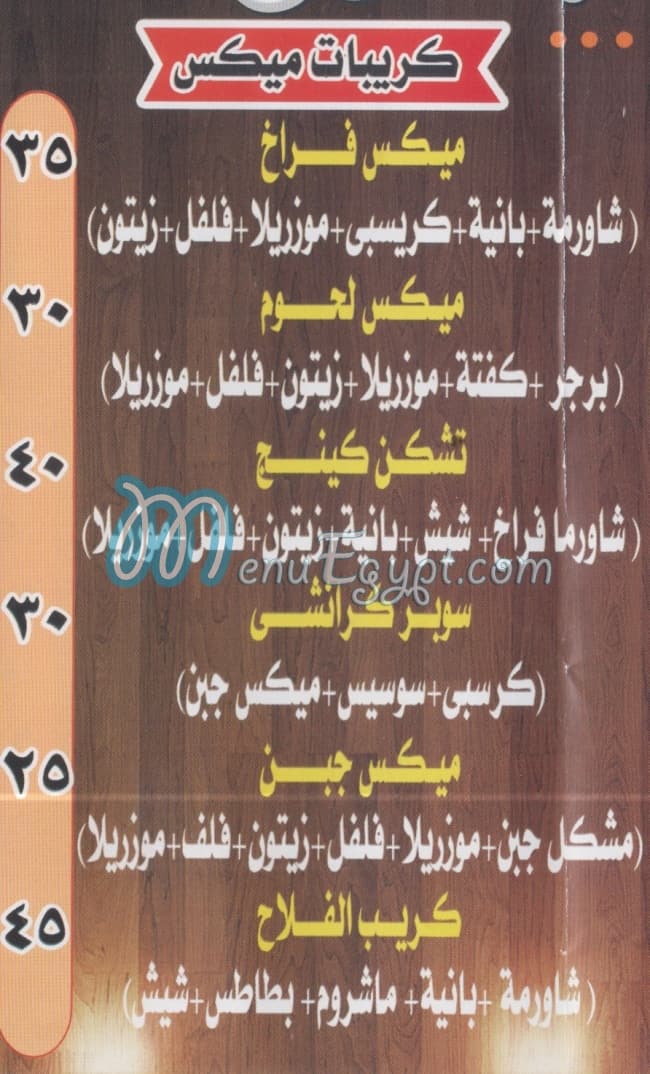 كريبات ميكس
ميكس فراخ ٣٥
( شاورمة+بانية+كريسبى+موزريلا+فلفل+زيتون)
ميكس لحوم ٣٠
( برجر +كفتة+موزريلا+زيتون+فلفل+موزريلا)
تشكن كينج ٤٠
( شاورما فراخ+ شيش+بانية+زيتون+فلفل+موزريلا)
MenuEgypt.com
سوبر كرانشى ٣٠
(كرسبى+سوسيس+ميكس جبن)
ميكس جبن ٢٥
(مشكل جبن+موزريلا+فلفل+زيتون+فلف+موزريلا)
كريب الفلاح ٤٥
( شاورمة +بانية+ ماشروم+ بطاطس+شيش)